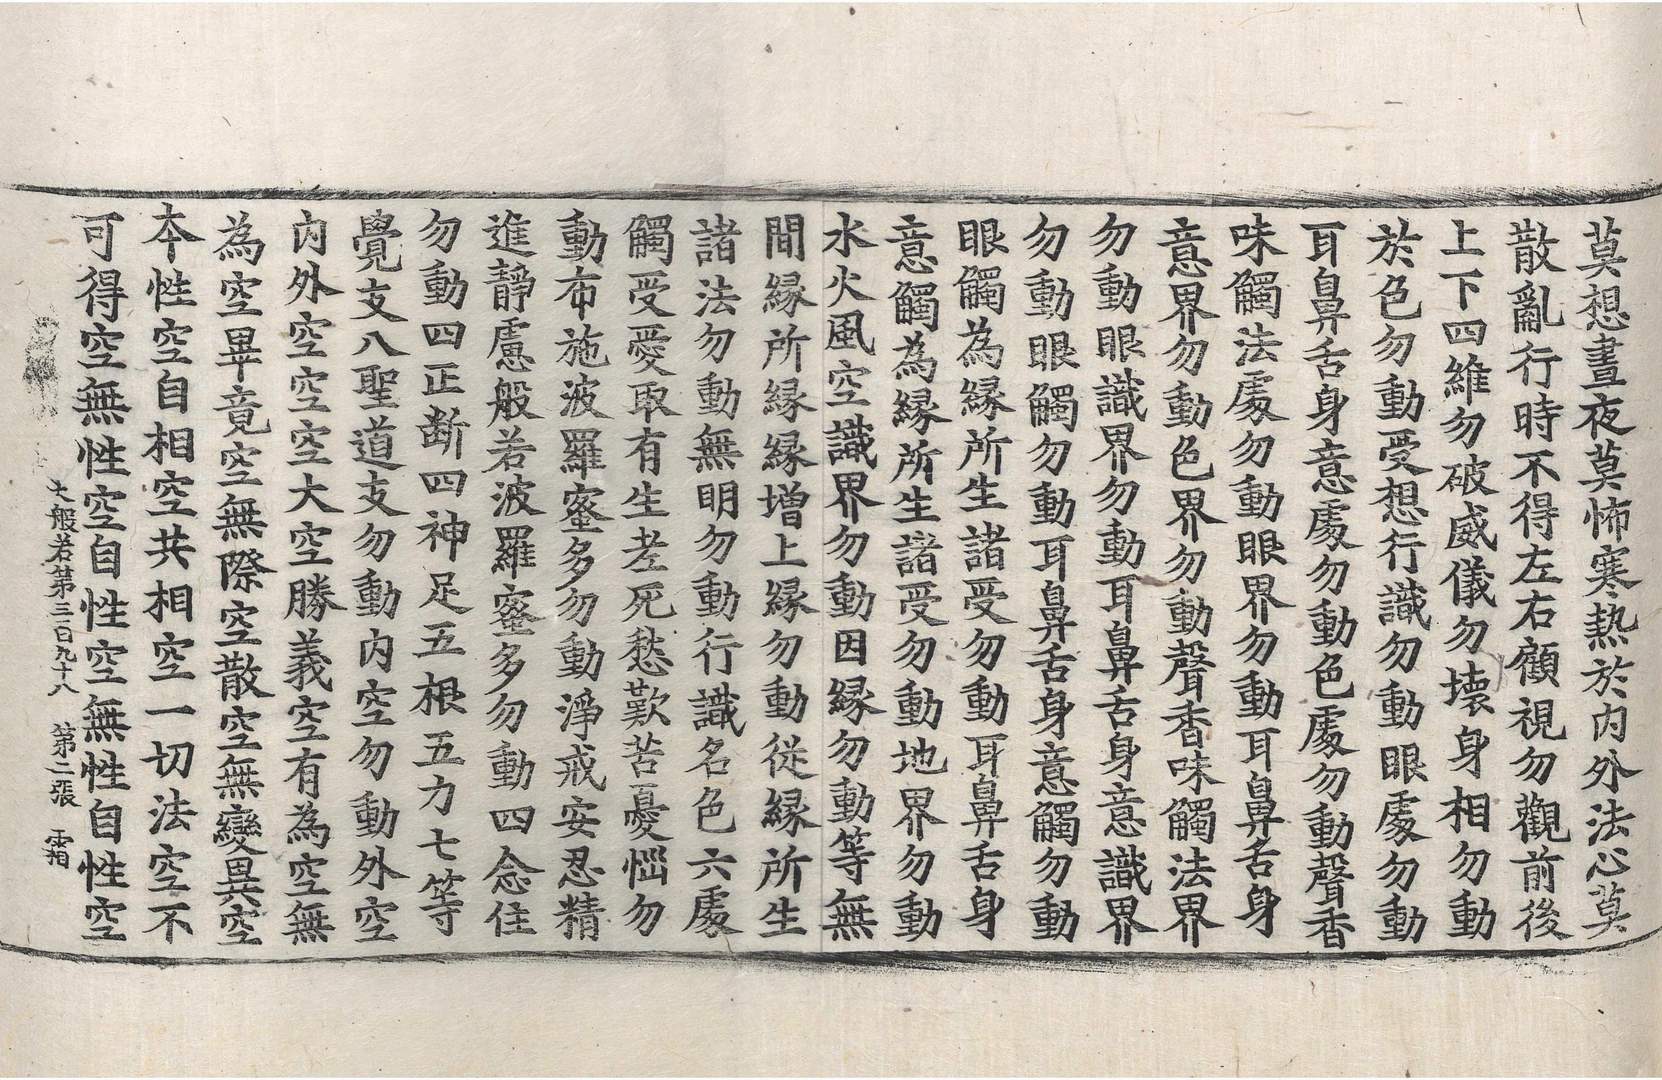 莫想晝夜莫怖寒熱於内外法心莫
散亂行時不得左右顧視勿觀前後
上下四維勿破威儀勿壊身相勿動
於色勿動受想行識勿動眼處勿動
耳鼻舌身意處勿動色處勿動聲香
味觸法處勿動眼界勿動耳鼻舌身
意界勿動色界勿動聲香味觸法界
勿動眼識界勿動耳鼻舌身意識界
勿動眼觸勿動耳鼻舌身意觸勿動
眼觸為緣所生諸受勿動耳鼻舌身
意觸為緣所生諸受勿動地界勿動
水火風空識界勿動因緣勿動等無
間緣所緣緣增上緣勿動從緣所生
諸法勿動無明勿動行識名色六處
觸受愛取有生老死愁歎苦憂惱勿
動布施波羅蜜多勿動淨戒安忍精
進靜慮般若波羅蜜多勿動四念住
勿動四正斷四神足五根五力七等
覺支八聖道支勿動内空勿動外空
内外空空空大空勝義空有為空無
為空畢竟空無際空散空無變異空
本性空自相空共相空一切法空不
可得空無性空自性空無性自性空
大般若第三百九十八 第二張 霜